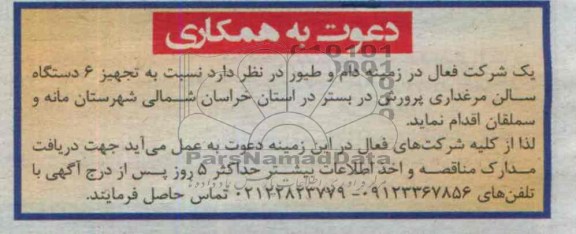 دعوت به همکاری
یک شرکت فعال در زمینه دام و طیور در نظر دارد نسبت به تجهیز ۶ دستگاه
سالن مرغداری پرورش در بستر در استان خراسان شمالی شهرستان مانه و
سملقان اقدام نماید.
لذا از کلیه شرکت‌های فعال در این زمینه دعوت به عمل می‌آید جهت دریافت
مدارک مناقصه و اخذ اطلاعات بیشتر حداکثر ۵ روز پس از درج آگهی با
تلفن‌های ۰۹۱۲۳۳۶۷۸۵۶ - ۰۲۱۲۲۸۲۳۷۷۹ تماس حاصل فرمایند.
ParsNamadData